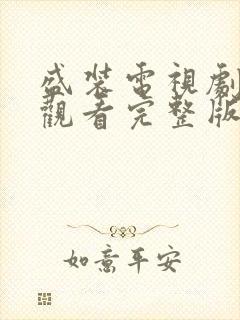 盛裝電視劇
觀看完整版
如意平安